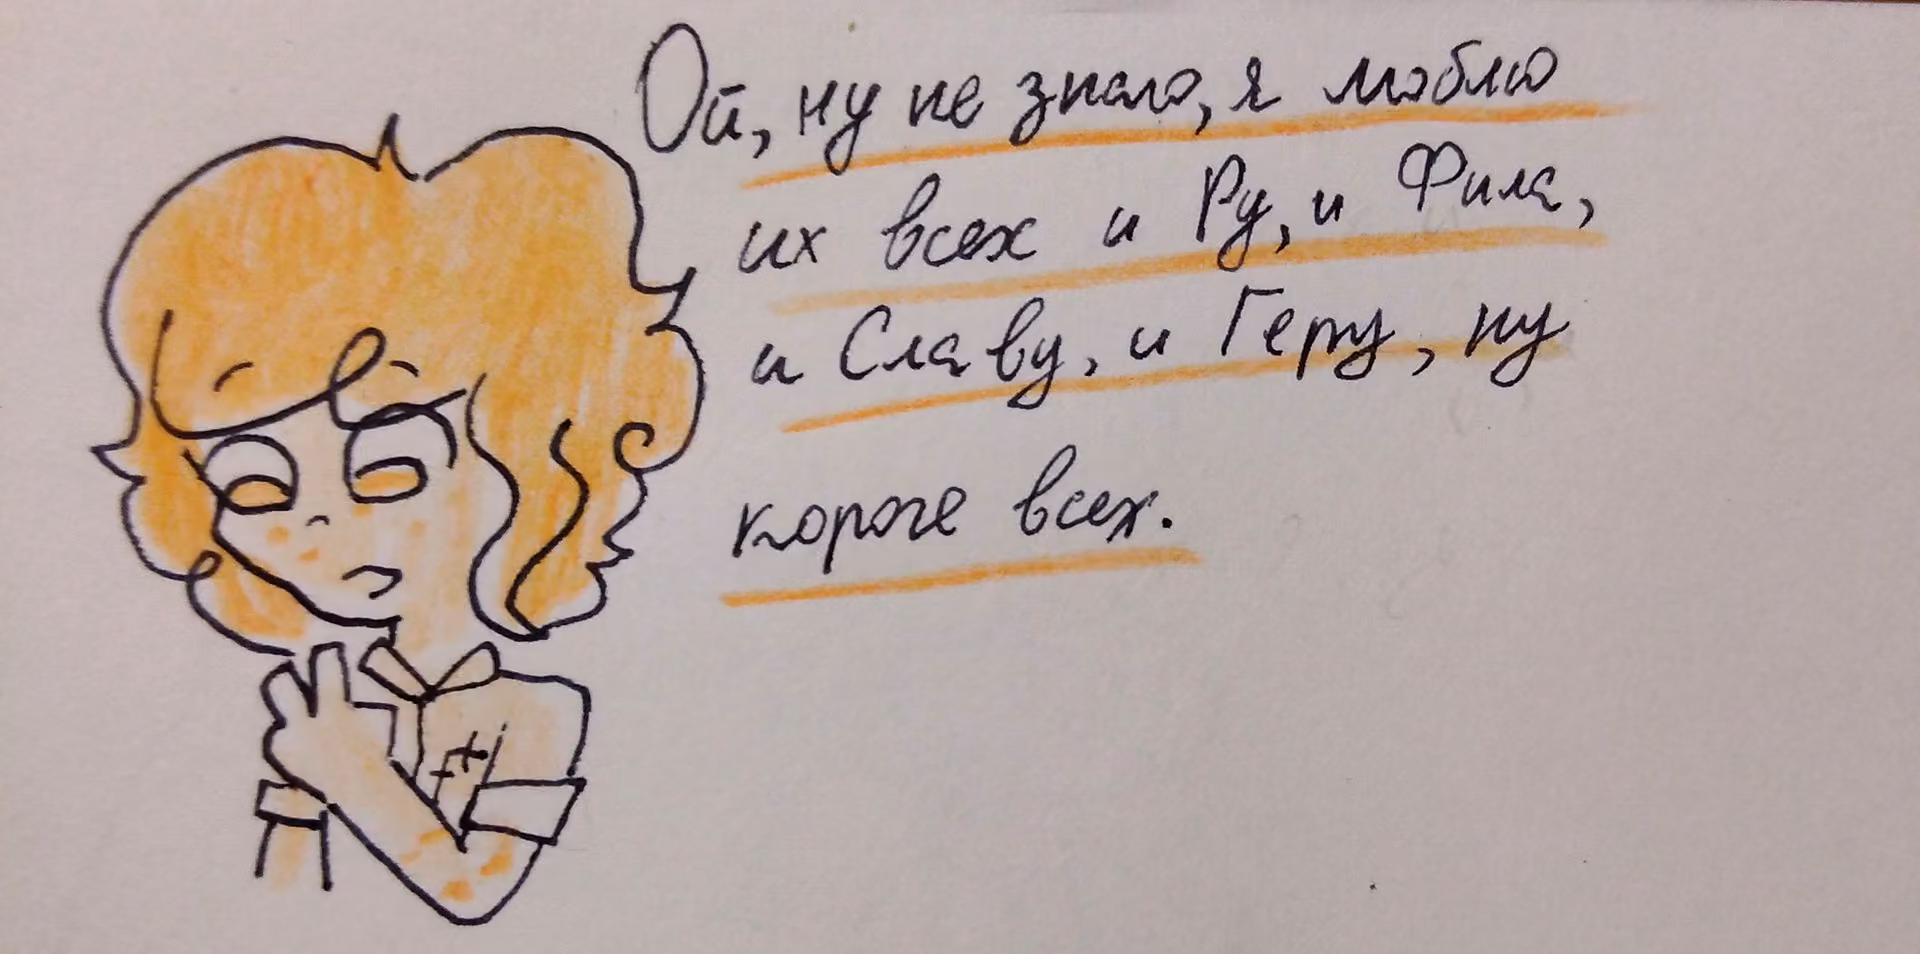 Ой, ну не знаю, я люблю
их всех и Ру, и Фила,
и Славу, и Геру, ну
короче всех.